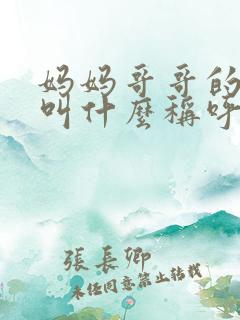 妈妈哥哥的
叫什麼稱呼
張長卿
未经同意禁止转载